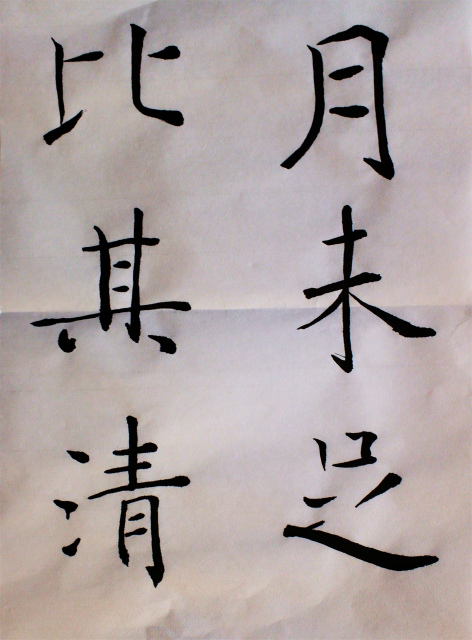 月未足
比其清